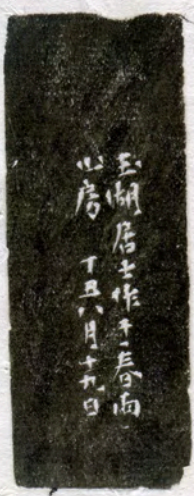 玉湖居士作于春雨
山房 丁丑八月十九日